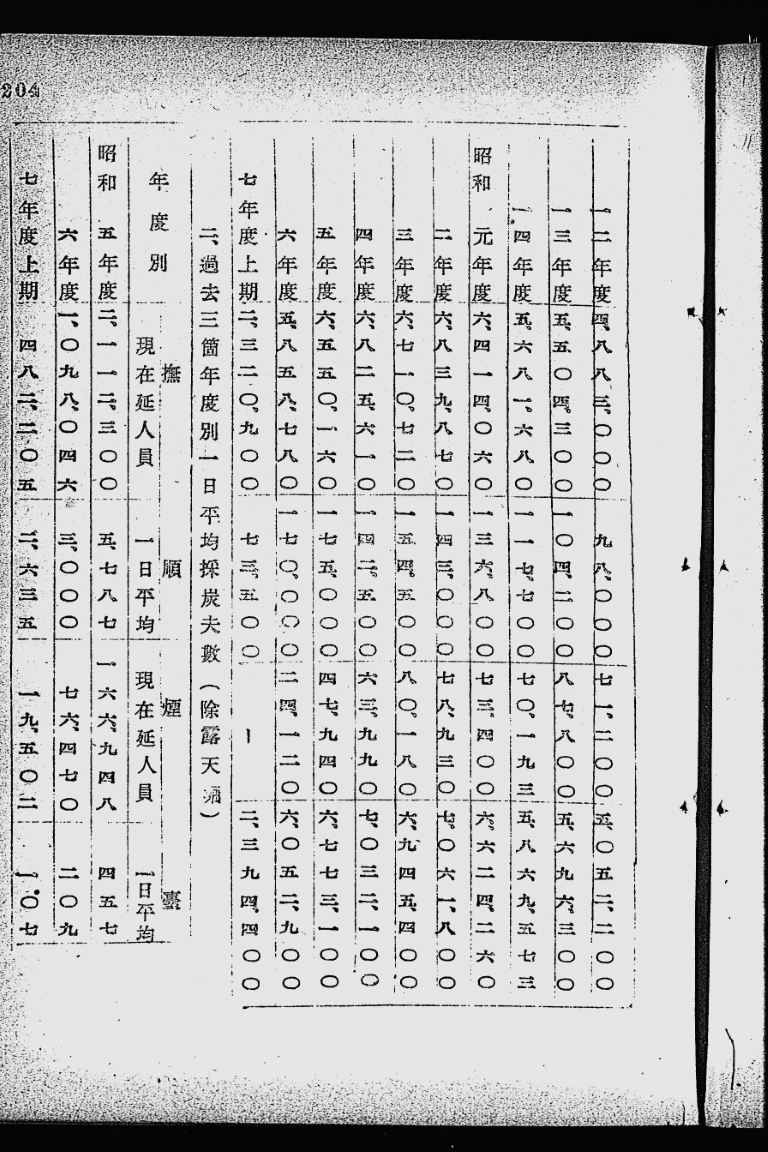 204
一二年度 四、八八三、〇〇〇 九八、〇〇〇 七一、二〇〇 五、〇五二、二〇〇
一三年度 五、五〇四、三〇〇 一〇四、二〇〇 八七、八〇〇 五、六九六、三〇〇
一四年度 五、六八一、六八〇 一一七、七〇〇 七〇、一九三 五、八六九、五七三
昭和 元年度 六、四一四、〇六〇 一三六、八〇〇 七三、四〇〇 六、六二四、二六〇
二年度 六、八三九、八七〇 一四三、〇〇〇 七八、九三〇 七、〇六一、八〇〇
三年度 六、七一〇、七二〇 一五四、五〇〇 八〇、一八〇 六、九四五、四〇〇
四年度 六、八二五、六一〇 一四二、五〇〇 六三、九九〇 七、〇三二、一〇〇
五年度 六、五五〇、一六〇 一七五、〇〇〇 四七、九四〇 六、七七三、一〇〇
六年度 五、八五八、七八〇 一七〇、〇〇〇 二四、一二〇 六、〇五二、九〇〇
七年度上期 二、三二〇、九〇〇 七三、五〇〇 ー 二、三九四、四〇〇
二、過去三箇年度別一日平均採炭夫數(除露天堀)
撫順 煙臺
年度別 現在延人員 一日平均 現在延人員 一日平均
昭和 五年度 二、一一二、三〇〇 五、七八七 一六六、九四八 四五七
六年度 一、〇九八、〇四六 三、〇〇〇 七六、四七〇 二〇九
七年度上期 四八二、二〇五 二、六三五 一九、五〇二 一〇七